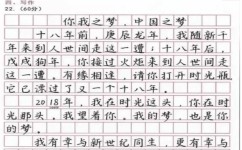 四、写作
22.（60分）
你我之梦，中国之梦
十八年前，庚辰龙年，我随新千
年来到人世间走这一遭；十八年后，
戊戌狗年，你接过火炬来到人世间走
这一遭。有缘相逢，请你打开时光瓶
它已漂过了又一个十八年。
2018年，我在时光这头，你在时
光那头，我望着你。我的梦，也是你
的梦。
我有幸与新世纪同生，更有幸与